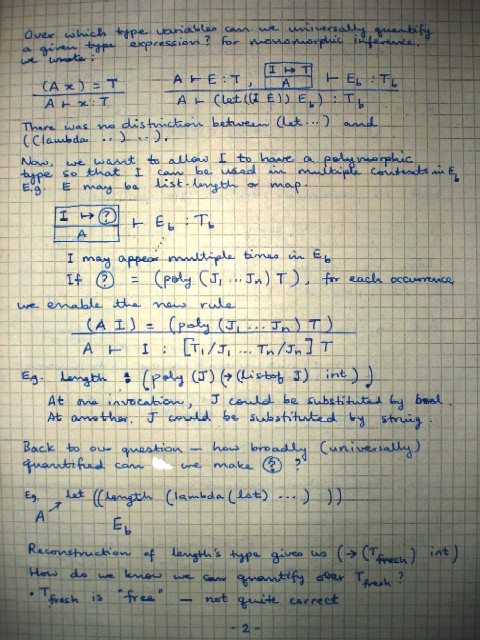 Over which type variables can we universally quantify
a given type expression? For monomorphic inference,
we wrote:
(A x) = T
A ⊢ x : T
A ⊢ E : T, [I ↦ T] A ⊢ E_b : T_b
A ⊢ (let ((I E)) E_b) : T_b
There was no distinction between (let ...) and
((lambda ...) ...).
Now, we want to allow I to have a polymorphic
type so that I can be used in multiple contexts in E_b
E.g. E may be list-length or map.
[I ↦ ?] A ⊢ E_b : T_b
I may appear multiple times in E_b
If ? = (poly (J_1 ... J_n) T), for each occurrence,
we enable the new rule
(A I) = (poly (J_1 ... J_n) T)
A ⊢ I : [T_1/J_1 ... T_n/J_n] T
Eg. length : (poly (J) (→ (listof J) int))
At one invocation, J could be substituted by bool.
At another, J could be substituted by string.
Back to our question — how broadly (universally)
quantified can we make ? ?
Eg. let ((length (lambda (lst) ...) ))
A
E_b
Reconstruction of length's type gives us (→ (T_fresh) int)
How do we know we can quantify over T_fresh?
• T_fresh is "free" — not quite correct
- 2 -